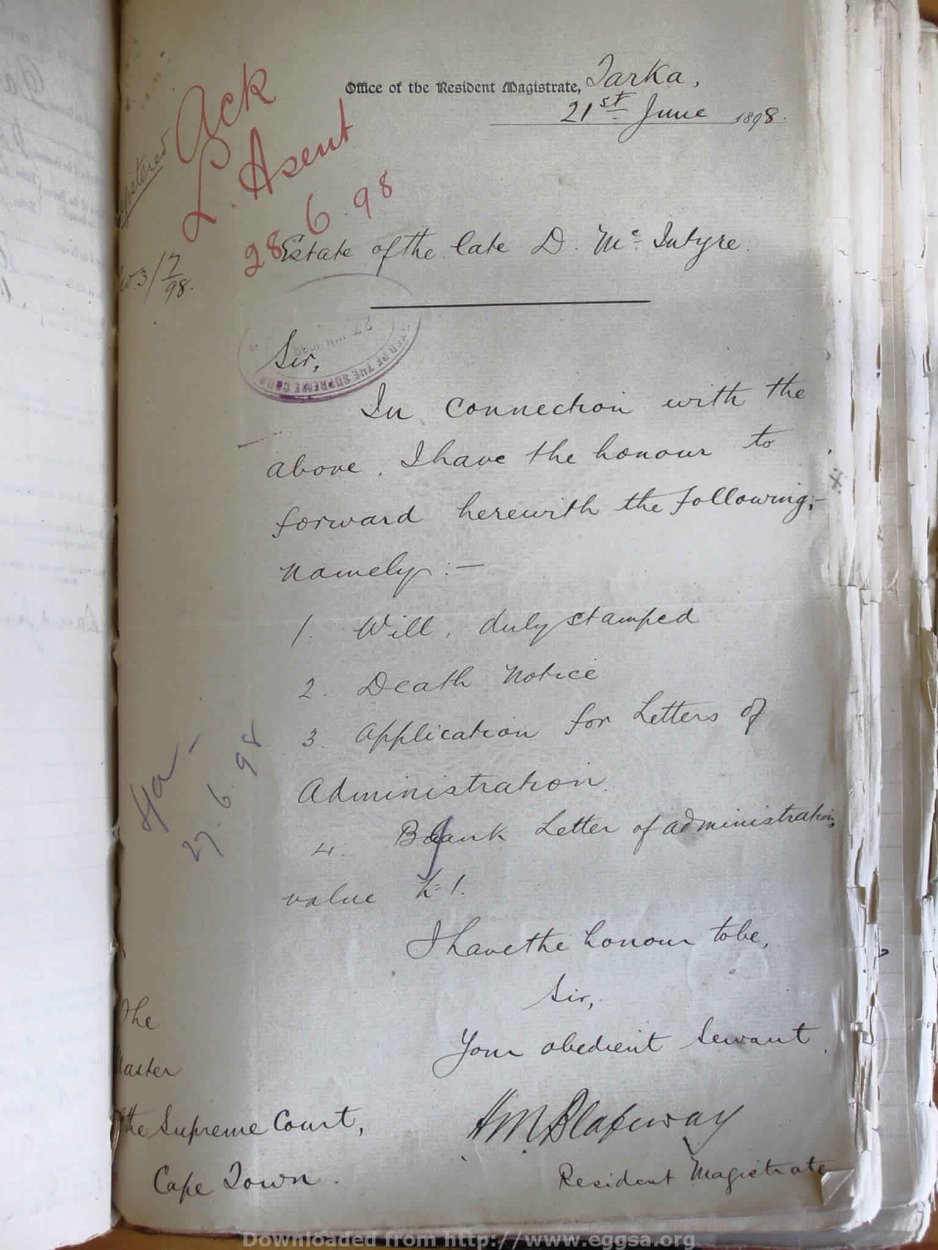 Office of the Resident Magistrate, Tarka,
21st June 1898.
Ack
L. Asent
28.6.98
Estate of the late D. Mc Intyre.
Sir,
In connection with the
above, I have the honour to
forward herewith the following,-
namely :-
1. Will, duly stamped
2. Death Notice
3. Application for Letters of
Administration.
4. Blank Letter of administration,
value £1.
27.6.98
I have the honour to be,
Sir,
Your obedient Servant.
Resident Magistrate
The
Master
of the Supreme Court,
Cape Town.
Downloaded from http://www.eggsa.org